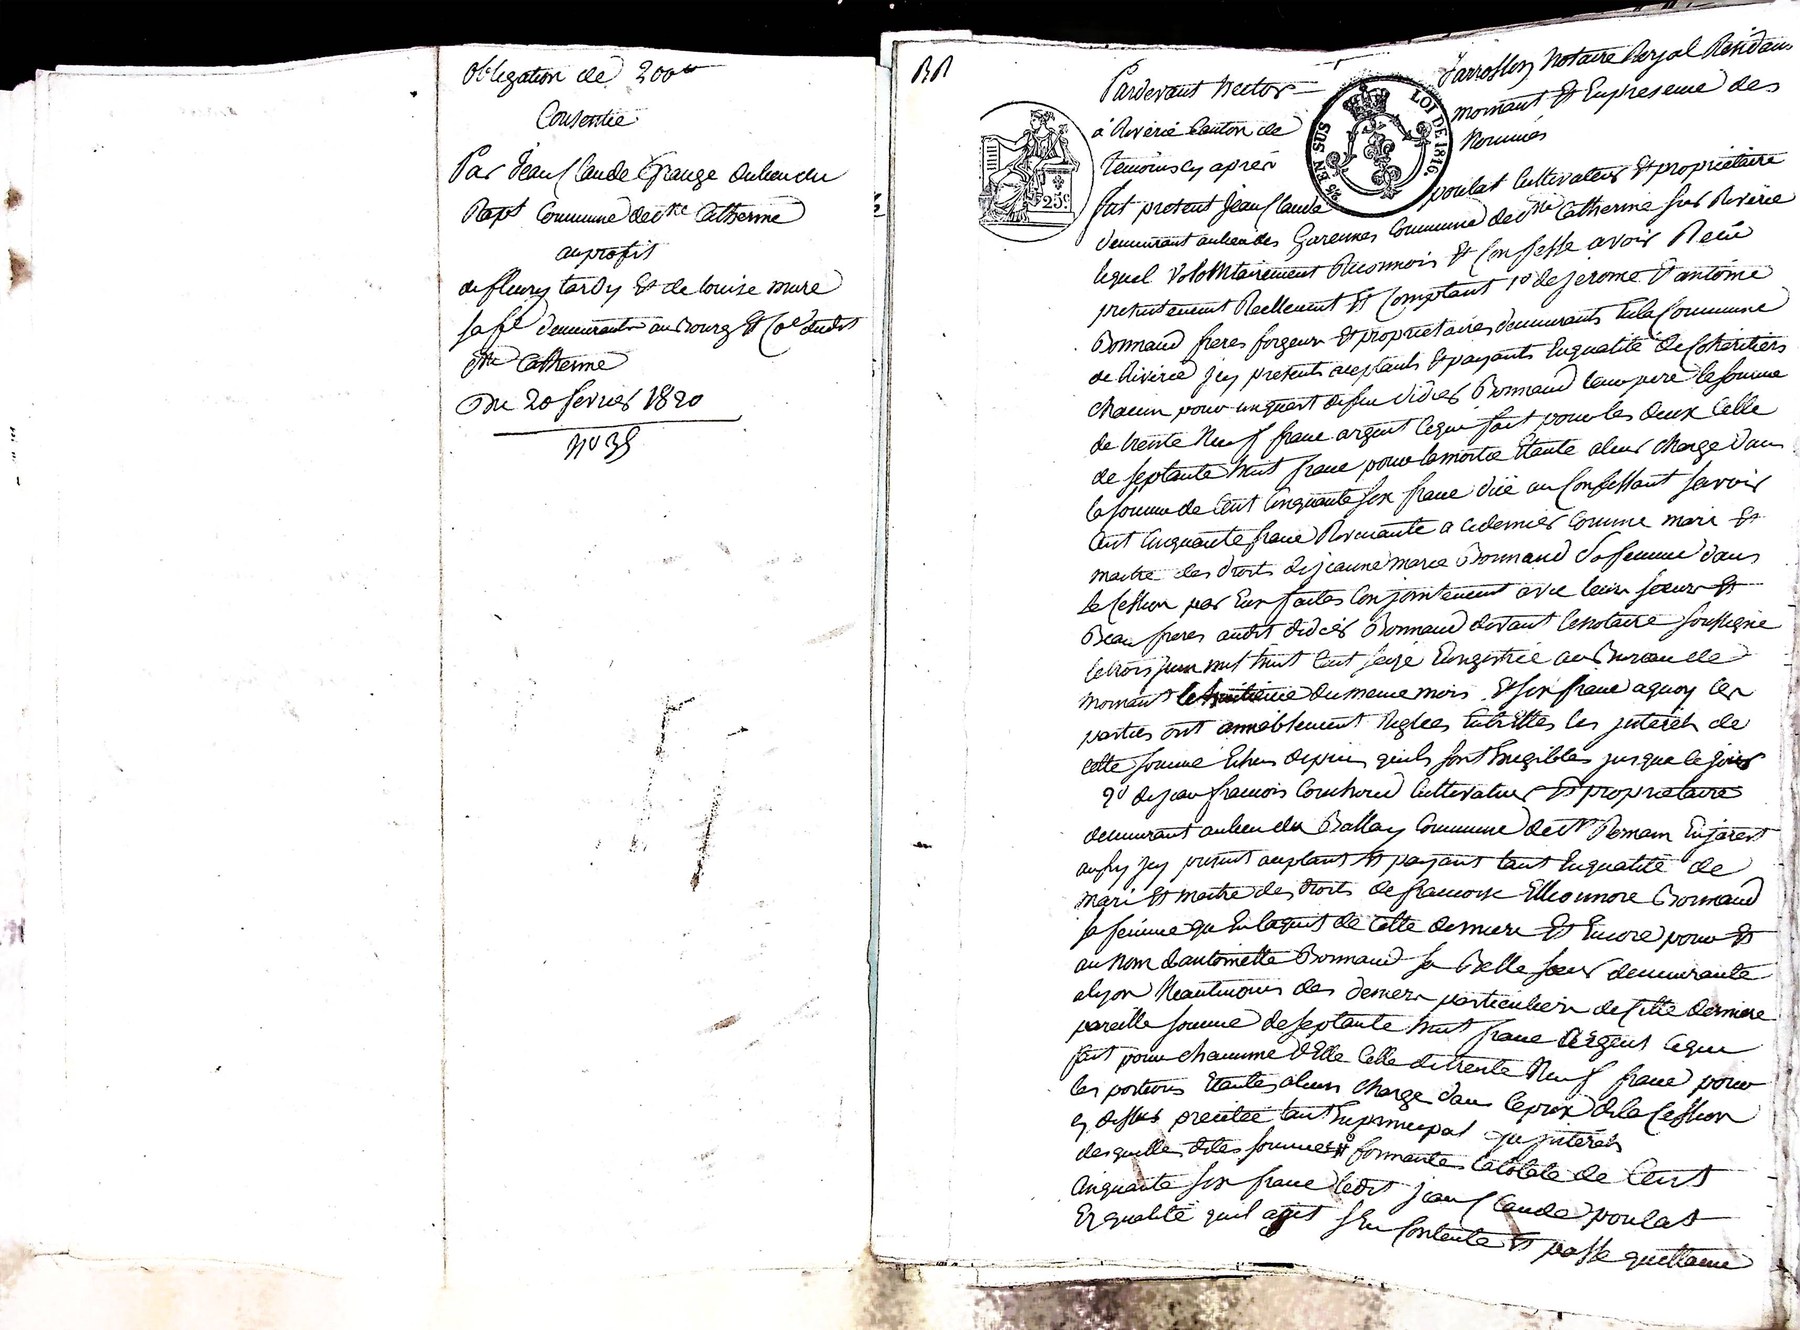 obligation de 200#
Consentie
Par Jean Claude Grange dulieu du
Rapt Commune de Ste Catherine
auprofit
de fleury tardy Et de louise mure
sa fe demeurants au Bourg Et Cne dudit
Ste Catherine
Du 20 fevrier 1820
No 35
Pardevant Nector Jarrosson Notaire Royal Residant
à Riverie Canton de mornant Et Enpresence des
temoins cy après Nommés
fut present Jean Claude poulat Cultivateur Et propriétaire
demeurant aulieu des Garennes Commune de Ste Catherine sur Riverie
lequel volontairement Reconnois Et Confesse avoir Reçu
presentement Réellement Et Comptant 1o de jerome Et antoine
Bonnand freres forgeurs Et propriétaires demeurants Enla Commune
de Riverie jcy presents aceptants Et payants Enqualité de Cohéritiers
chacun pour unquart defeu didier Bonnand leur pere la somme
de trente Neuf franc argent cequi fait pour les deux Celle
de septante huit franc pour lamoitié Etante aleur charge dans
la somme de Cent Cinquante six franc due au Confessant savoir
Cent Cinquante franc Revenante a cedernier comme mari Et
maitre des droits de jeanne marie Bonnand sa femme dans
la Cession par Eux faites Conjointement avec leurs soeurs Et
Beau freres audit didier Bonnand devant le notaire soussigné
le trois juin mil huit Cent seize Enregistrée au Bureau de
mornant le huitieme du meme mois Et six franc aquoy les
parties ont amiablement Reglées Entrelles les jnterets de
cette somme Echus depuis quils sont Exigibles jusque le jour
2o de jean francois Couchoud Cultivateur Et propriétaire
demeurant aulieu du Ballay Commune de St Romain Enjarest
aussy jcy present aceptant Et payant tant Enqualité de
mari Et maitre des droits de francoise Elleonnore Bonnand
sa femme qu Enlaquit de Cette derniere Et Encore pour Et
au Nom d'antoinette Bonnand sa Belle soeur demeurante
alyon Neantmoins des deniers particuliers de Cette derniere
pareille somme de septante huit franc argent ceque
fait pour chacunne d'Elle Celle detrente Neuf franc pour
les portions Etantes aleurs charge dans leprix de la Cession
cy dessus precitée tant Enprincipal qu jnterets
desquelles dites sommes formantes latotale de Cent
Cinquante six franc ledit jean Claude poulat
Er qualité quil agit sEn Contente Et passe quittance